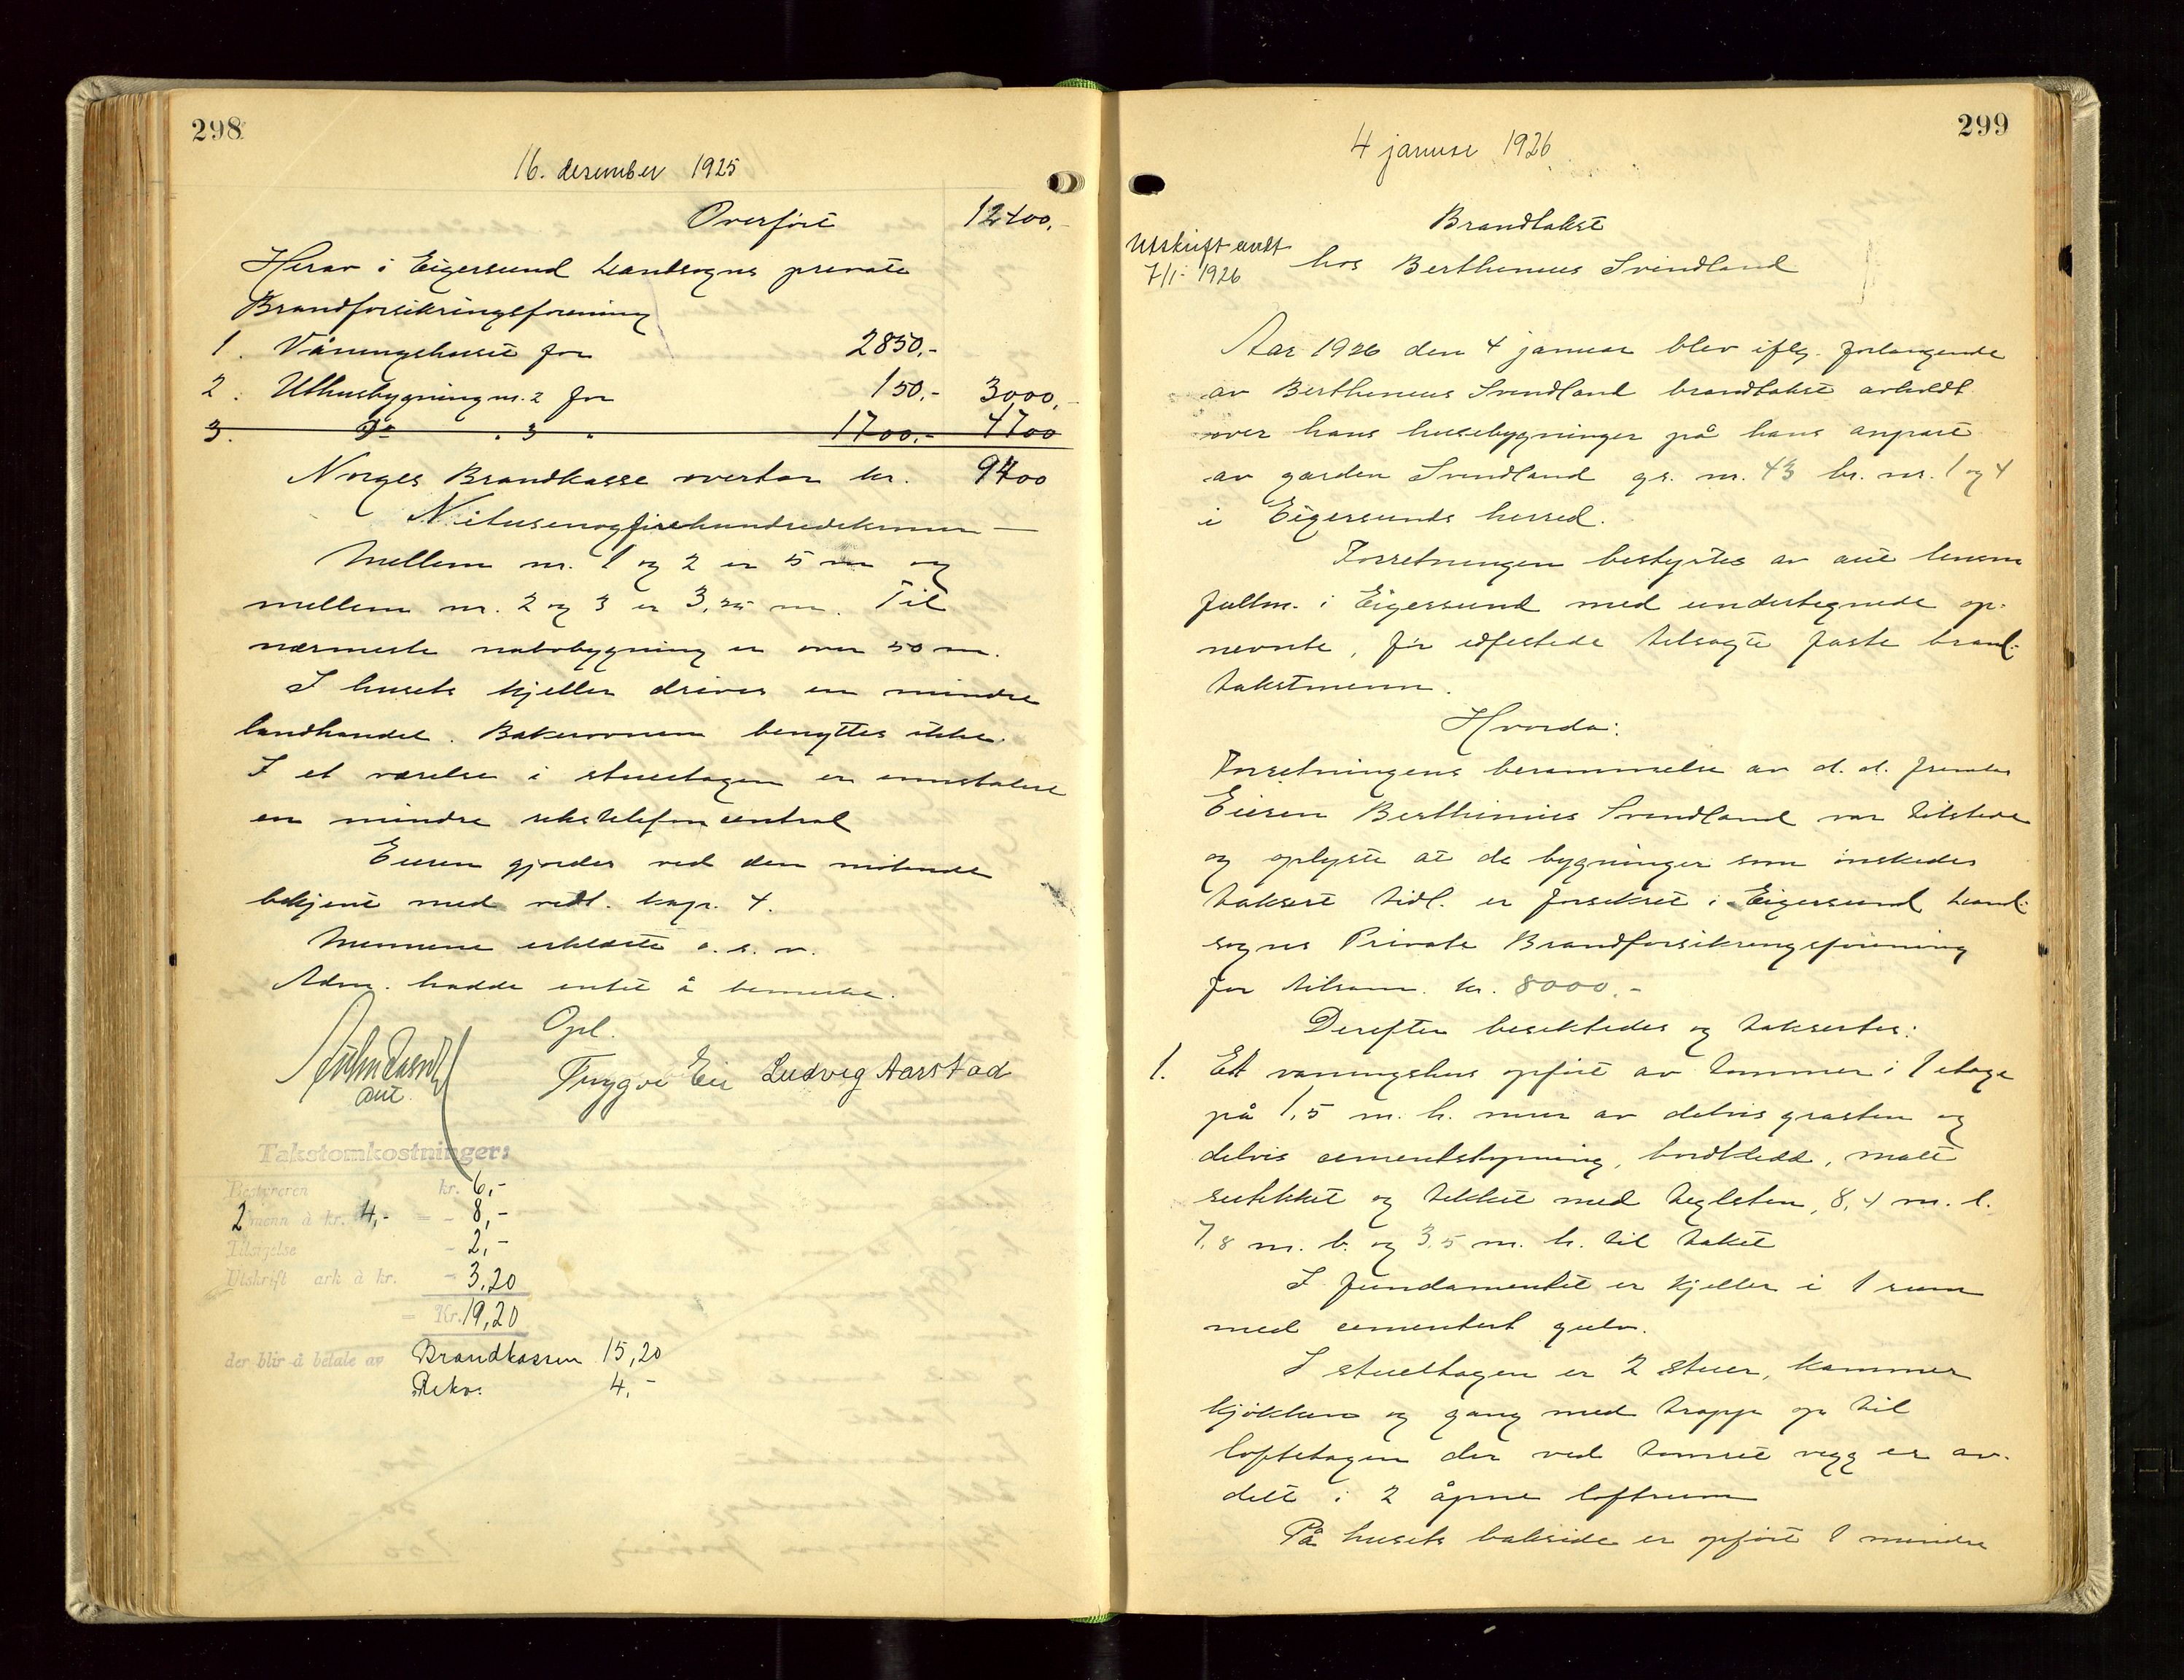 298
16. desember 1925
Overført 12400,-
Herav i Eigersund Landsogns private
Brandforsikringsforening
1. Våningshuset for 2850,-
2. Uthusbygning nr. 2 for 150,- 3000,-
3. Do " 3 " 1700,- 4700
Norges Brandkasse overtar kr. 9400
Nitusenogfirehundredekroner —
Mellem nr. 1 og 2 er 5 m og
mellem nr. 2 og 3 er 3,25 m. Til
nærmeste nabobygning er over 50 m.
I husets kjeller drives en mindre
landhandel. Bakerovnen benyttes ikke.
I et værelse i stueetagen er innstalert
en mindre rikstelefoncentral
Eieren gjordes ved den møtende
bekjent med vedt. kap. 4.
Mennene erklærte o. s. v.
Adm. hadde intet å bemerke.
Opl.
aut.
Trygve Eie Ludvig Aarstad
Takstomkostninger:
Bestyreren kr. 6,-
2 menn à kr. 4,- = - 8,-
Tilsigelse - 2,-
Utskrift ark à kr. - 3,20
= Kr. 19,20
der blir å betale av Brandkassen 15,20
Rekv. 4,-
299
4 januar 1926
Brandtakst
Utskrift sendt
7/1- 1926
hos Berthinius Svindland
Aar 1926 den 4 januar blev iflg. forlangende
av Berthinius Svindland brandtakst avholdt
over hans husebygninger på hans anpart
av garden Svindland gr. nr. 43 br. nr. 1 og 4
i Eigersunds herred.
Forretningen bestyrtes av aut lensm
fullm. i Eigersund med undertegnede op-
nevnte, før edfestede tilsagte faste brand-
takstmenn.
Hvorda:
Forretningens berammelse av d. d. fremla
Eieren Berthinius Svindland var tilstede
og oplyste at de bygninger som ønskedes
taksert tidl. er forsikret i Eigersund Land-
sogns Private Brandforsikringsforening
for tilsam. kr. 8000.-
Derefter besiktedes og taksertes:
1. Ett våningshus opført av tømmer i 1 etage
på 1,5 m. h. mur av delvis gråsten og
delvis cementstøpning, bordkledd, malt
rutekket og tekket med teglsten, 8,4 m. l.
7,8 m. b. og 3,5 m. h. til taket
I fundamentet er kjeller i 1 rum
med cementert gulv.
I stueetagen er 2 stuer, kammer
kjøkken og gang med trapp op til
loftetagen der ved tømret vegg er av-
delt i 2 åpne loftrum
På husets bakside er opført 1 mindre